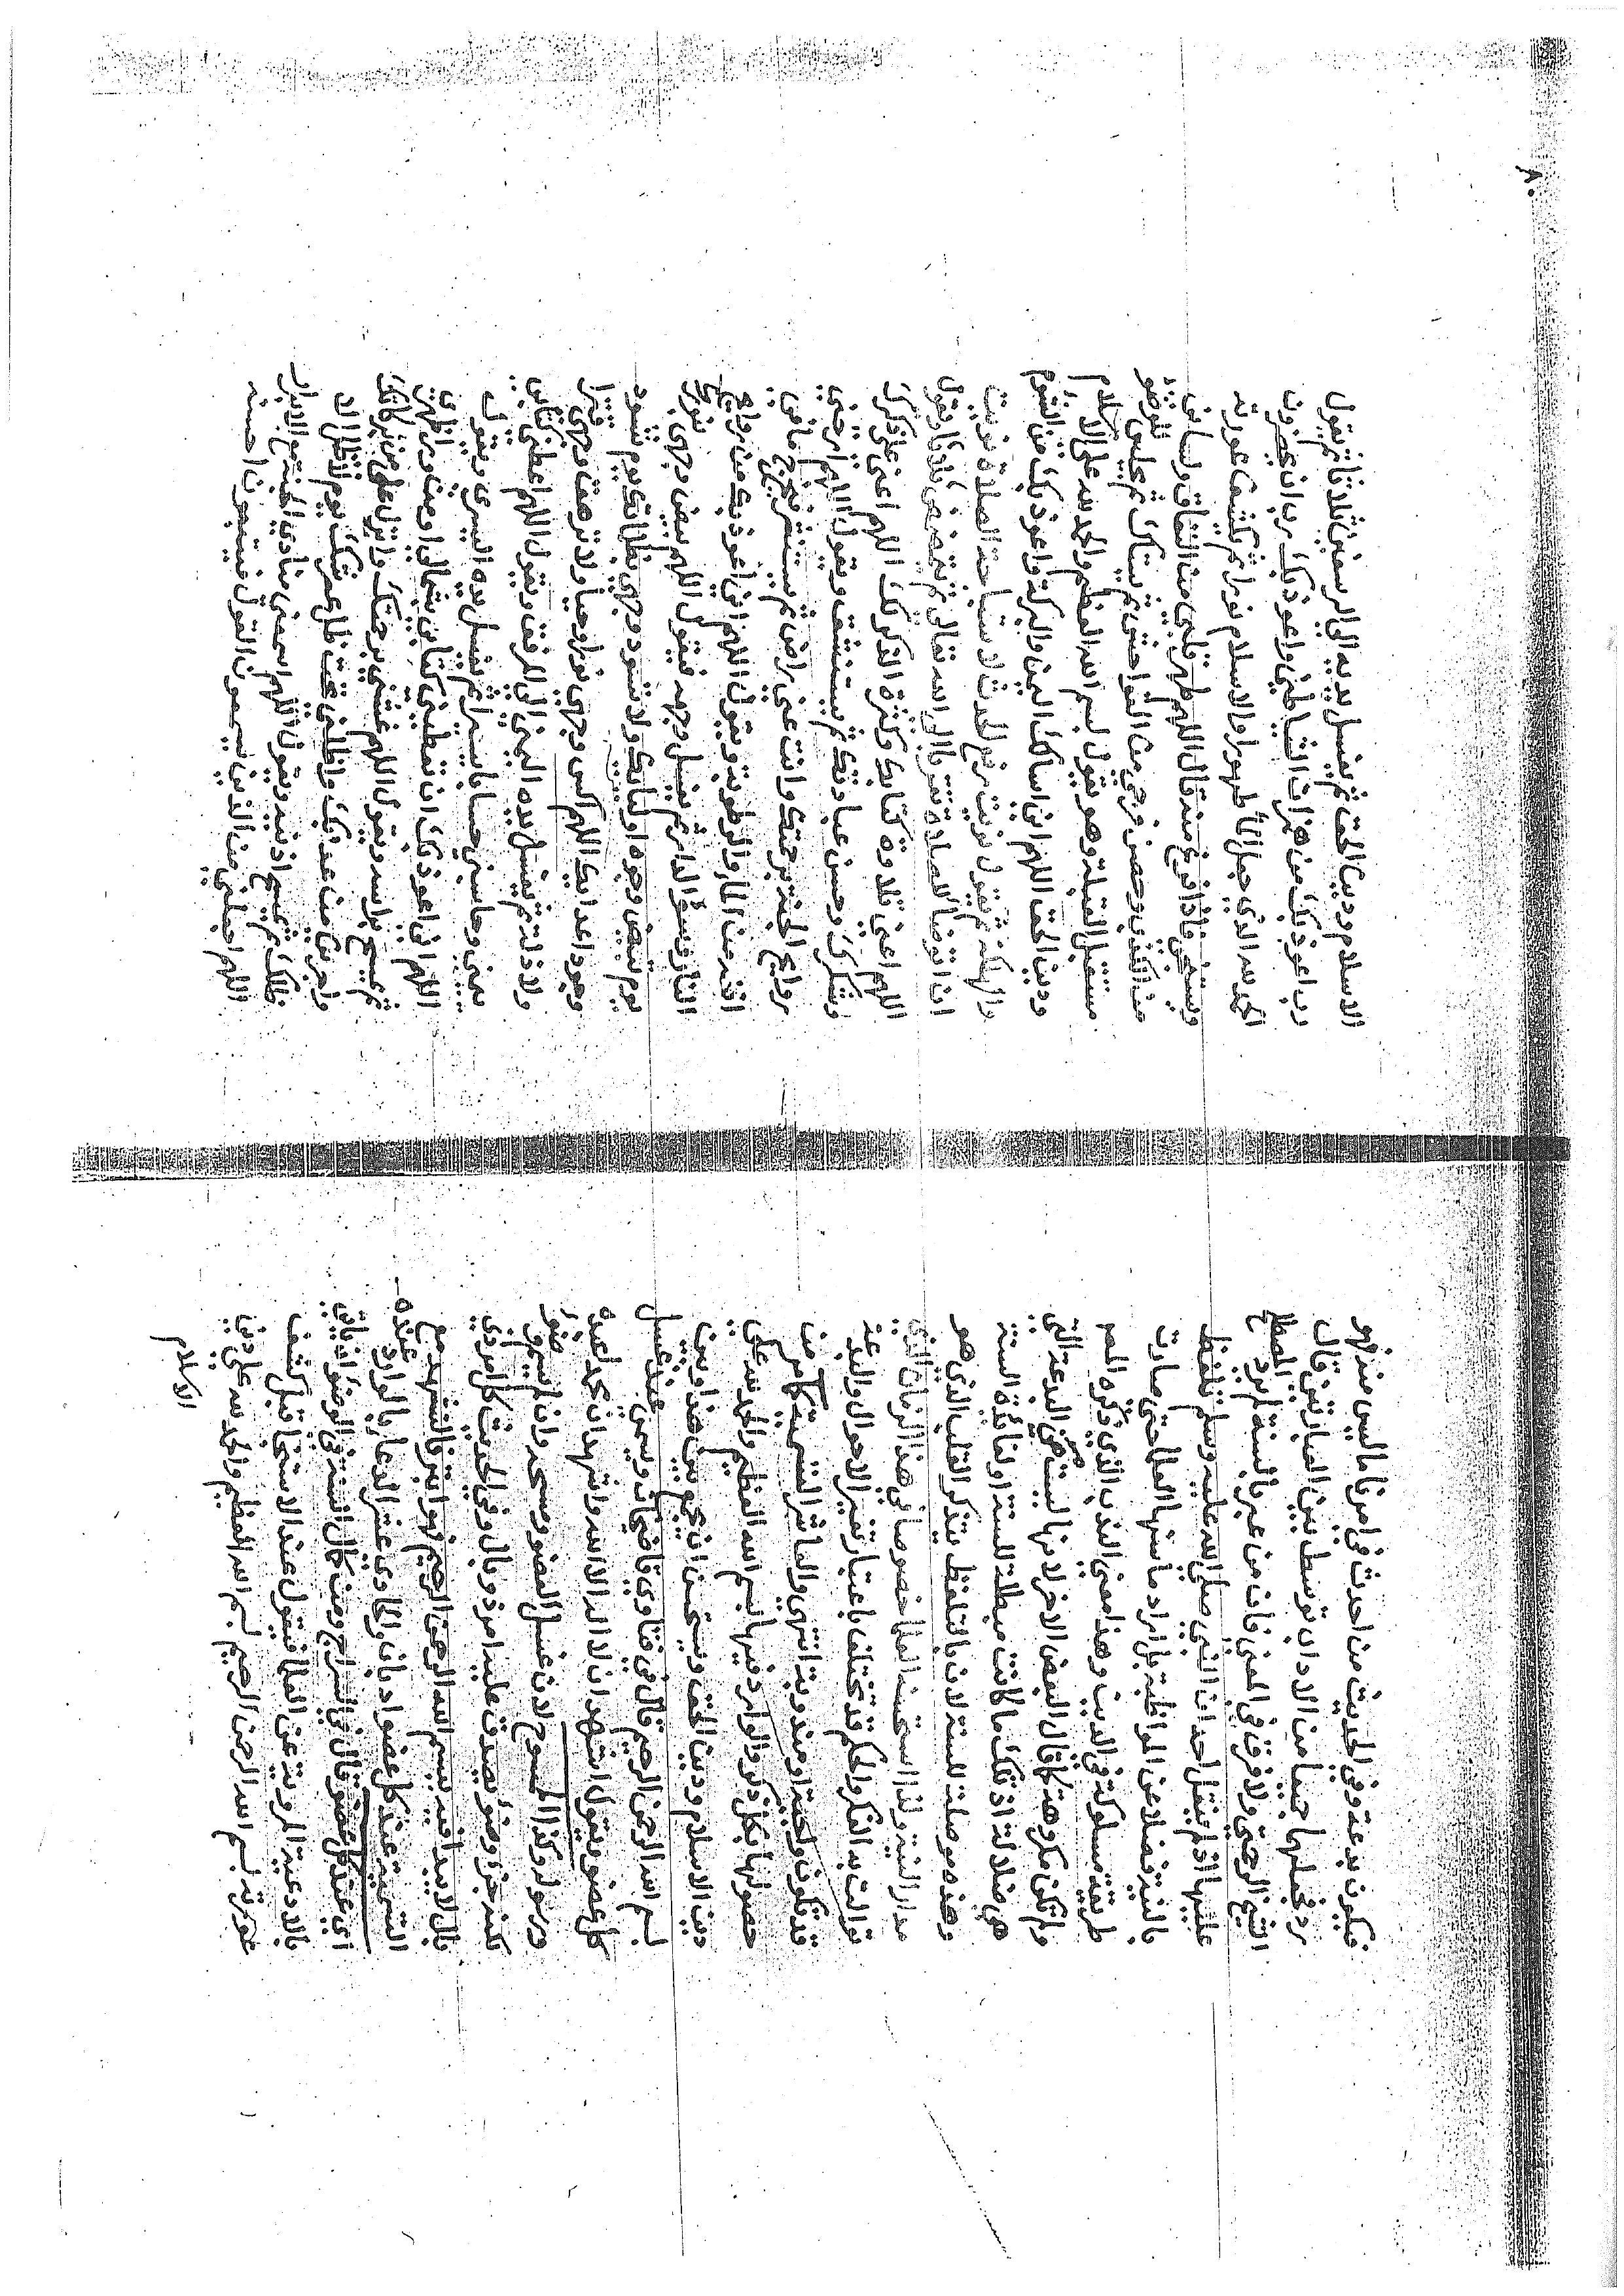 فيكون بدعة وفي الحديث من احدث في امرنا ما ليس منه فهو
رد فجعلها جيفا من الاداب توسط بين العبارتين قال
الشيخ الرحمتي ولا فرق في المعنى فان من عبر بالسنة لم يرد المصطلح
عليها اذ لم ينقل احد ان النبي صلى الله عليه وسلم تلفظ
بالنية فضلا عن المواظبة بل اراد ما سنها العلما حتى صارت
طريقة مسلوكة في الدين وهذا معنى الندب الذي ذكره المصـ
ولم تكن مكروهة كما قال البعض الاخر لانها ليست من البدعة التي
هي ضلالة اذ تلك ما كانت مبطلة للسنة او لفائدة السنة
وهذه موصلة للسنة لان بالتلفظ يتذكر القلب الذي هو
مدار النية ولذا استحسنه العلما خصوصا في هذا الزمان الذي
توالت به الفكر والحكم قد تختلف باعتبار تغير الاحوال والبدعة
قد تكون واجبة او مندوبة انتهى والعاشر التسمية كما مر من
حصولها بكل ذكر والوارد فيها بسم الله العظيم والحمد لله على
دين الاسلام ودين الحق ويستحسن ان يجمع بين هذا وبين
بسم الله الرحمن الرحيم قال في فتاوى قاضيخان ويسمي عند غسل
كل عضو ويقول اشهد ان لا اله الا الله واشهد ان محمدا عبده
ورسوله وكذا الممسوح لان غسل العضو ومسحه وان لم يكن وضوء
لكنه جزء وضوء يصدق عليه امر ذو بال وفي الحديث كل امر ذي
بال لا يبدأ فيه ببسم الله الرحمن الرحيم فهو ابتر فالتشهد مع
التسمية عند كل عضو ادبان والحادي عشر الدعا بالوارد عنده
اي عند كل عضو قال في السراج ومن كمال السنة في الوضوء ان ياتي
بالادعية المروية عن العلما فيقول عند الاستنجا قبل كشف
عورته بسم الله الرحمن الرحيم بسم الله العظيم والحمد لله على دين
الاسلام
الاسلام ودين الحق ثم يغسل يديه الى الرسغين ثلاثا ثم يقول
رب اعوذ بك من همزات الشياطين واعوذ بك رب ان يحضرون
الحمد لله الذي جعل الماء طهورا والاسلام نورا ثم يكشف عورته
ويستنجي فاذا فرغ منه قال اللهم طهر قلبي من النفاق ولساني
من الكذب وحصن فرجي من الفواحش ثم يستاك ثم يجلس للوضوء
مستقبل القبلة وهو يقول بسم الله العظيم والحمد لله على الاسلام
ودين الحق اللهم اني اسالك اليمن والبركة واعوذ بك من الشوم
والهلكة ثم يقول نويت رفع الحدث لاستباحة الصلاة او نويت
ان اتوضأ للصلاة تقربا الى الله تعالى ثم يتمضمض ثلاثا ويقول
اللهم اعني على تلاوة كتابك وكثرة الذكر لك اللهم اعني على ذكرك
وشكرك وحسن عبادتك ثم يستنشق ويقول اللهم ارحني
روايح الجنة برحمتك وانت عني راض ثم يستنثر فيخرج ما في
انفه من الماء والرطوبة ويقول اللهم اني اعوذ بك من روايح
النار وسوء الدار ثم يغسل وجهه فيقول اللهم بيض وجهي بنورك
يوم تبيض وجوه اوليائك ولا تسود وجهي بظلماتك يوم تسود
وجوه اعدائك اللهم اكس وجهي نورا وحيا ولا ترهق وجهي قترا
ولا ذلة ثم يغسل يده اليمنى الى المرفق ويقول اللهم اعطني كتابي
بيمني وحاسبني حسابا يسيرا ثم يغسل يده اليسرى ويقول
اللهم اني اعوذ بك ان تعطيني كتابي بشمالي او من ورا ظهري
ثم يمسح براسه ويقول اللهم غشيني برحمتك وانزل علي من بركاتك
واجرني من عذابك واظلني تحت ظل عرشك يوم لا ظل الا
ظلك ثم يمسح اذنيه ويقول اللهم اسمعني منادي الجنة مع الابرار
اللهم اجعلني من الذين يسمعون القول فيتبعون احسنه